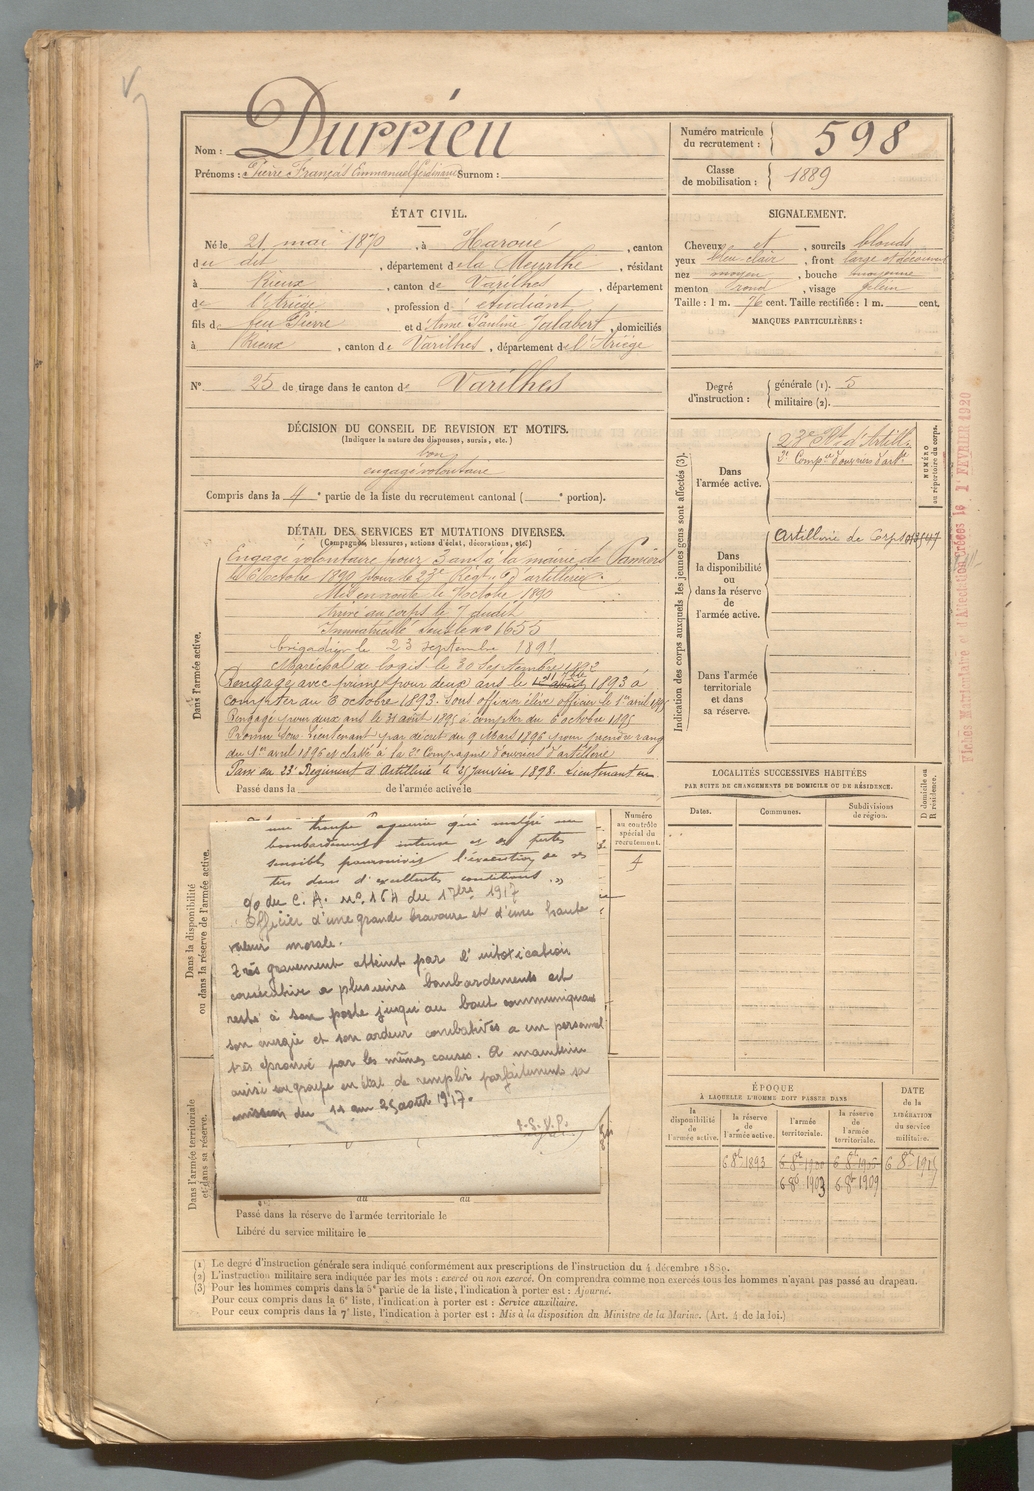 Durrieu
Nom :
Prénoms : Pierre François Emmanuel Ferdinand Surnom :
Numéro matricule
du recrutement : 598
Classe
de mobilisation : 1889
ÉTAT CIVIL.
Né le 21 mai 1870, à Haroué, canton
du dit, département de la Meurthe, résidant
à Rieux, canton de Varilhes, département
de l'Ariège, profession d'étudiant
fils de feu Pierre et d'Anne Pauline Jalabert, domiciliés
à Rieux, canton de Varilhes, département de l'Ariège
N° 25 de tirage dans le canton de Varilhes
SIGNALEMENT.
Cheveux et, sourcils blonds
yeux bleu clair, front large et découvert
nez moyen, bouche moyenne
menton rond, visage plein
Taille : 1 m. 76 cent. Taille rectifiée : 1 m. cent.
MARQUES PARTICULIÈRES :
Degré
d'instruction :
générale (1). 5
militaire (2).
DÉCISION DU CONSEIL DE REVISION ET MOTIFS.
(Indiquer la nature des dispenses, sursis, etc.)
bon
engagé volontaire
Compris dans la 4e partie de la liste du recrutement cantonal ( e portion).
DÉTAIL DES SERVICES ET MUTATIONS DIVERSES.
(Campagnes, blessures, actions d'éclat, décorations, etc.)
Dans l'armée active.
Engagé volontaire pour 3 ans à la mairie de Pamiers
le 6 octobre 1890 pour le 23e Régt d'artillerie
Mis en route le 7 octobre 1890
Arrivé au corps le 7 dudit
Immatriculé sous le no 1655
brigadier le 23 septembre 1891
Maréchal de logis le 30 Septembre 1892
Rengagé avec prime pour deux ans le 1893 à
compter du 6 octobre 1893. Sous officier élève officier le 1er avril 1895
Rengagé pour deux ans le 31 août 1895 à compter du 6 octobre 1895
Promu Sous-Lieutenant par décret du 9 Mars 1896 pour prendre rang
du 1er avril 1896 et classé à la 2e Compagnie d'ouvriers d'artillerie
Passé au 23e Régiment d'Artillerie le 25 Janvier 1898. Lieutenant en
Passé dans la de l'armée active le
Indication des corps auxquels les jeunes gens sont affectés (3).
Dans
l'armée active.
23e Rt d'Artill.
3e Compie d'ouvriers d'art.
NUMÉRO
au répertoire du corps.
Dans
la disponibilité
ou
dans la réserve
de
l'armée active.
Artillerie de Corps
Dans l'armée
territoriale
et dans
sa réserve.
Fiches Matricules et d'Affectation créées le 1 FÉVRIER 1920
LOCALITÉS SUCCESSIVES HABITÉES
PAR SUITE DE CHANGEMENTS DE DOMICILE OU DE RÉSIDENCE.
Dates.
Communes.
Subdivisions
de région.
D domicile ou
R résidence.
Dans la disponibilité
ou dans la réserve de l'armée active.
Numéro
au contrôle
spécial du
recrutement.
4
une troupe aguerrie qui malgré un
bombardement intense et des pertes
sensibles poursuivit l'exécution de ses
tirs dans d'excellentes conditions. »
du C. A. no. 164 du 1917
Officier d'une grande bravoure et d'une haute
valeur morale.
Très gravement atteint par l'intoxication
consécutive à plusieurs bombardements est
resté à son poste jusqu'au bout communiquant
son énergie et son ardeur combatives à un personnel
très éprouvé par les mêmes causes. A maintenu
ainsi son groupe en état de remplir parfaitement sa
mission du 11 au 25 août 1917.
T.S.V.P.
Dans l'armée territoriale
et dans sa réserve.
du au
Passé dans la réserve de l'armée territoriale le
Libéré du service militaire le
ÉPOQUE
À LAQUELLE L'HOMME DOIT PASSER DANS
la
disponibilité
de l'armée active.
la réserve
de
l'armée active.
l'armée
territoriale.
la réserve
de
l'armée
territoriale.
DATE
de la
LIBÉRATION
du service
militaire.
6 8bre 1893
6 8bre 1903
6 8bre 1909
(1) Le degré d'instruction générale sera indiqué conformément aux prescriptions de l'instruction du 4 décembre 1889.
(2) L'instruction militaire sera indiquée par les mots : exercé ou non exercé. On comprendra comme non exercés tous les hommes n'ayant pas passé au drapeau.
(3) Pour les hommes compris dans la 5e partie de la liste, l'indication à porter est : Ajourné.
Pour ceux compris dans la 6e liste, l'indication à porter est : Service auxiliaire.
Pour ceux compris dans la 7e liste, l'indication à porter est : Mis à la disposition du Ministre de la Marine. (Art. 4 de la loi.)